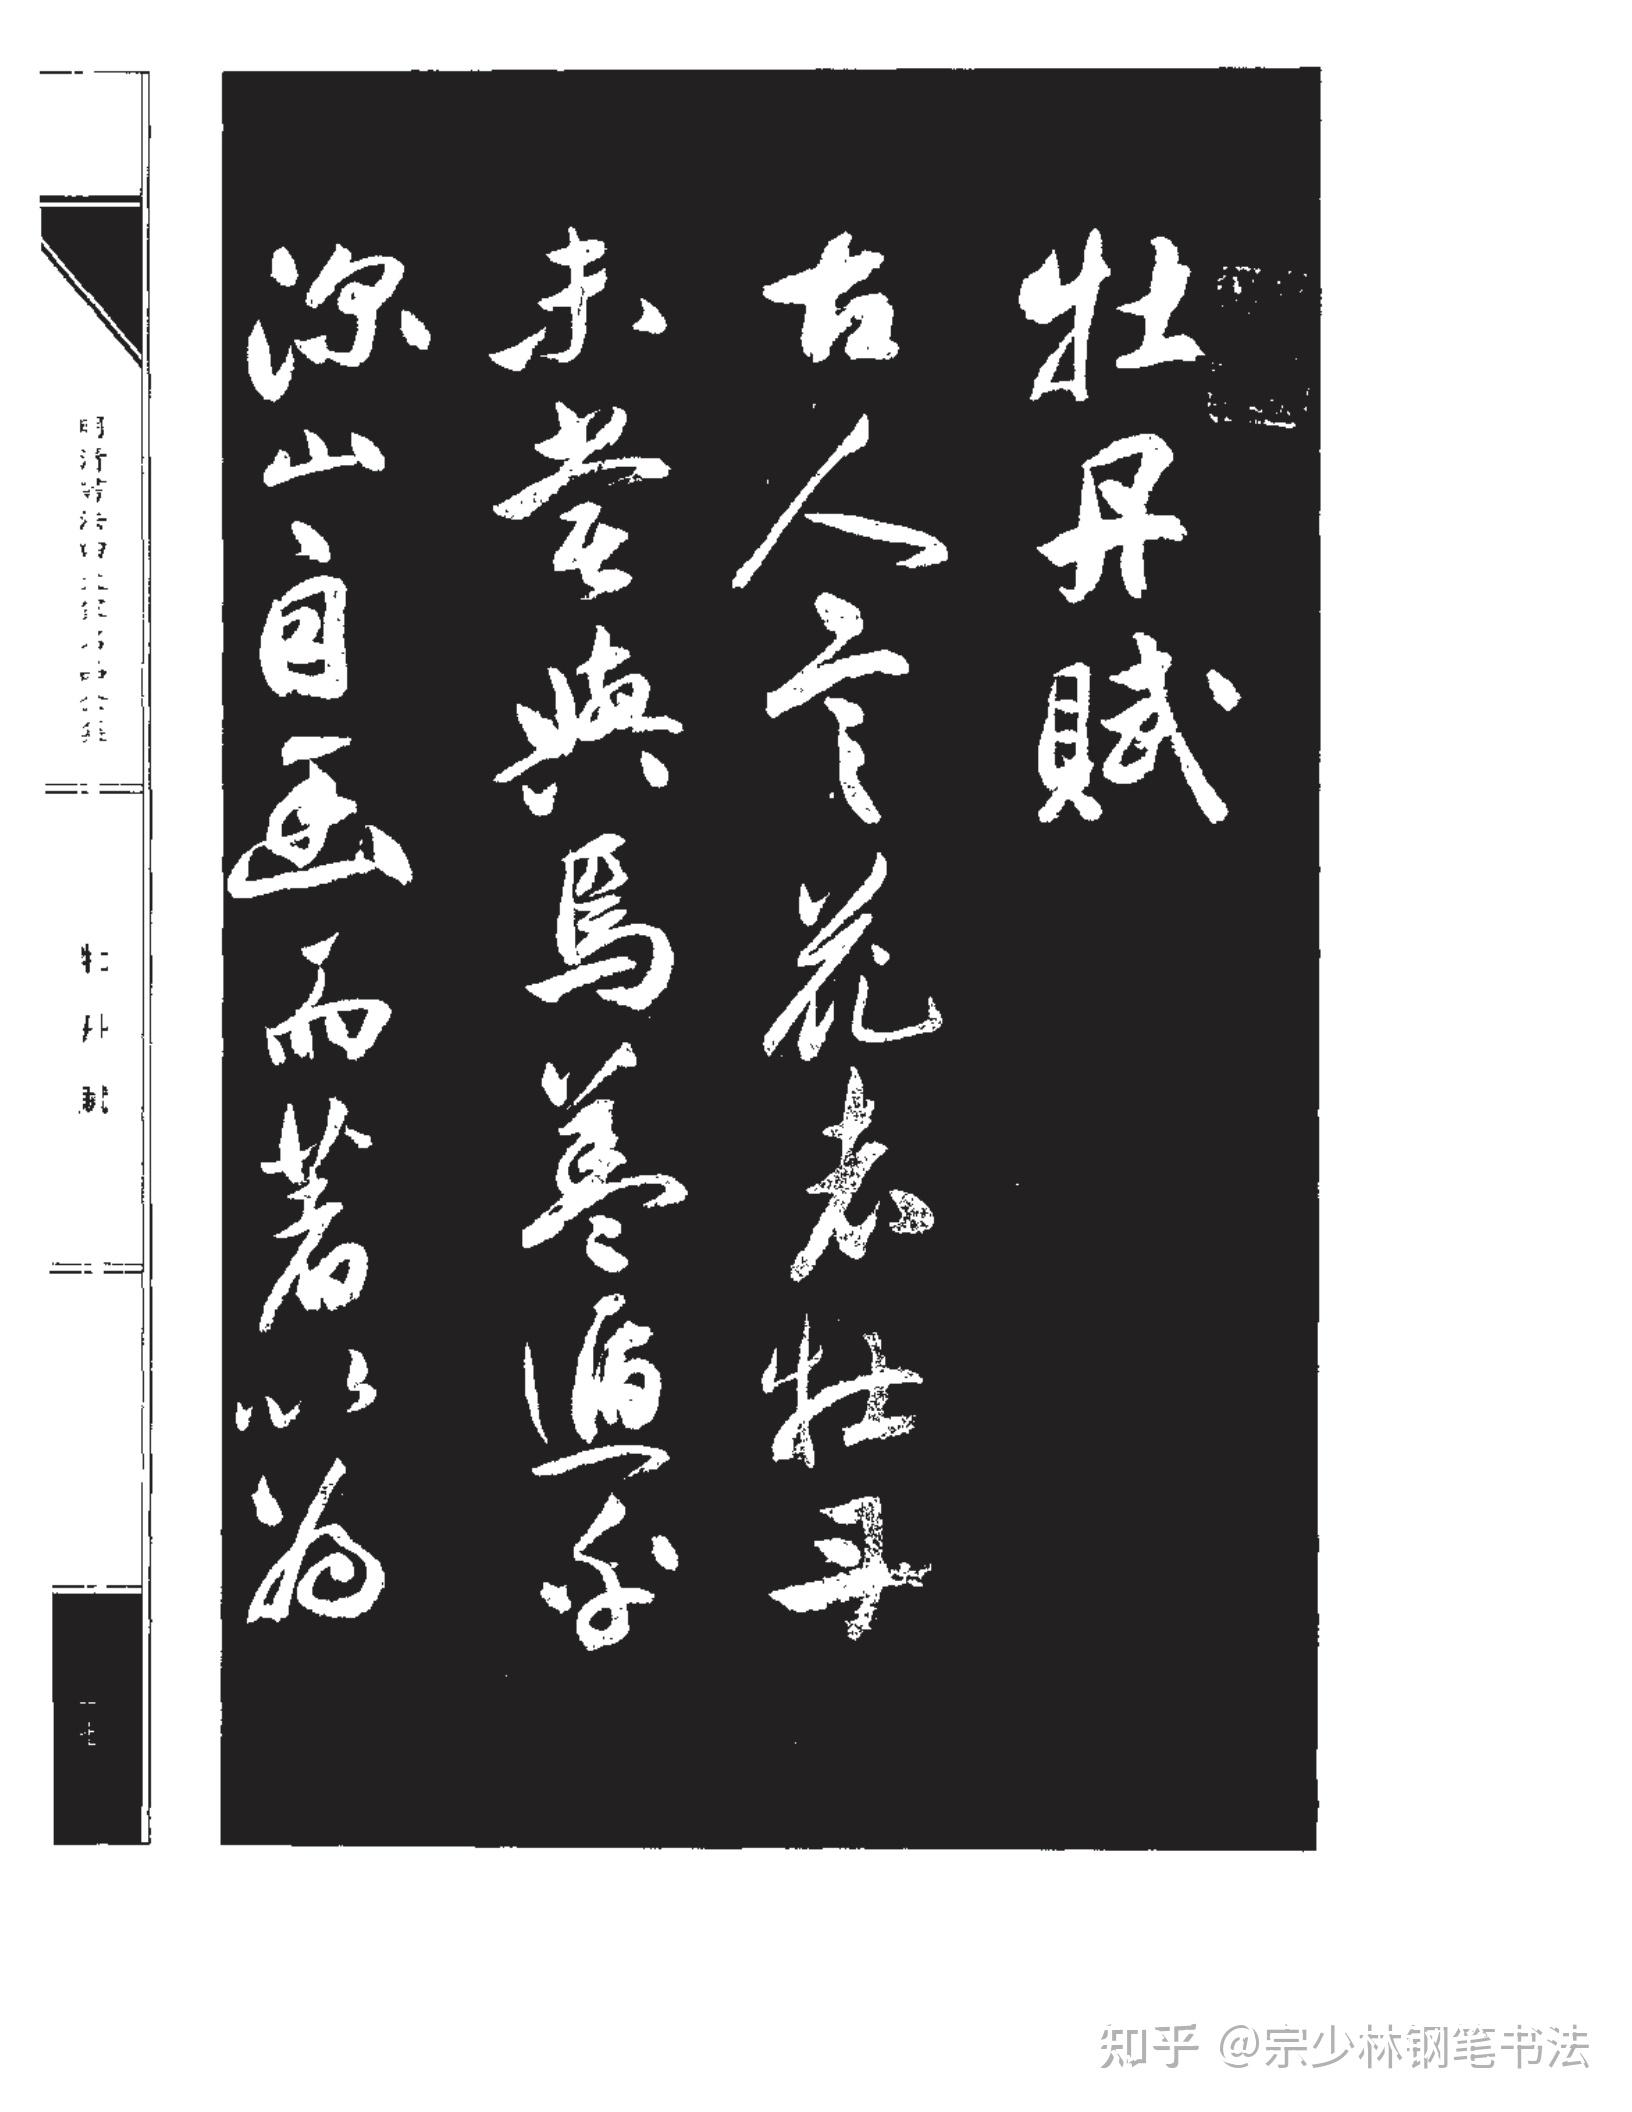 牡丹賦
古人言花者牡丹
未嘗與焉蓋遁
深山自幽而著以為
牡丹賦
知乎 @宗少林钢笔书法